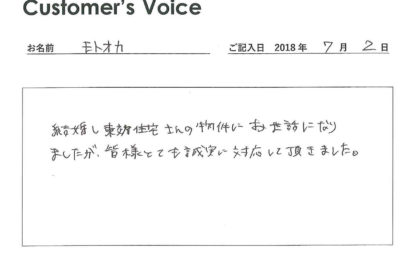 Customer's Voice
お名前 モトオカ ご記入日 2018年 7月 2日
結婚し東効住宅さんの物件にお世話になり
ましたが、皆様とても誠実に対応して頂きました。